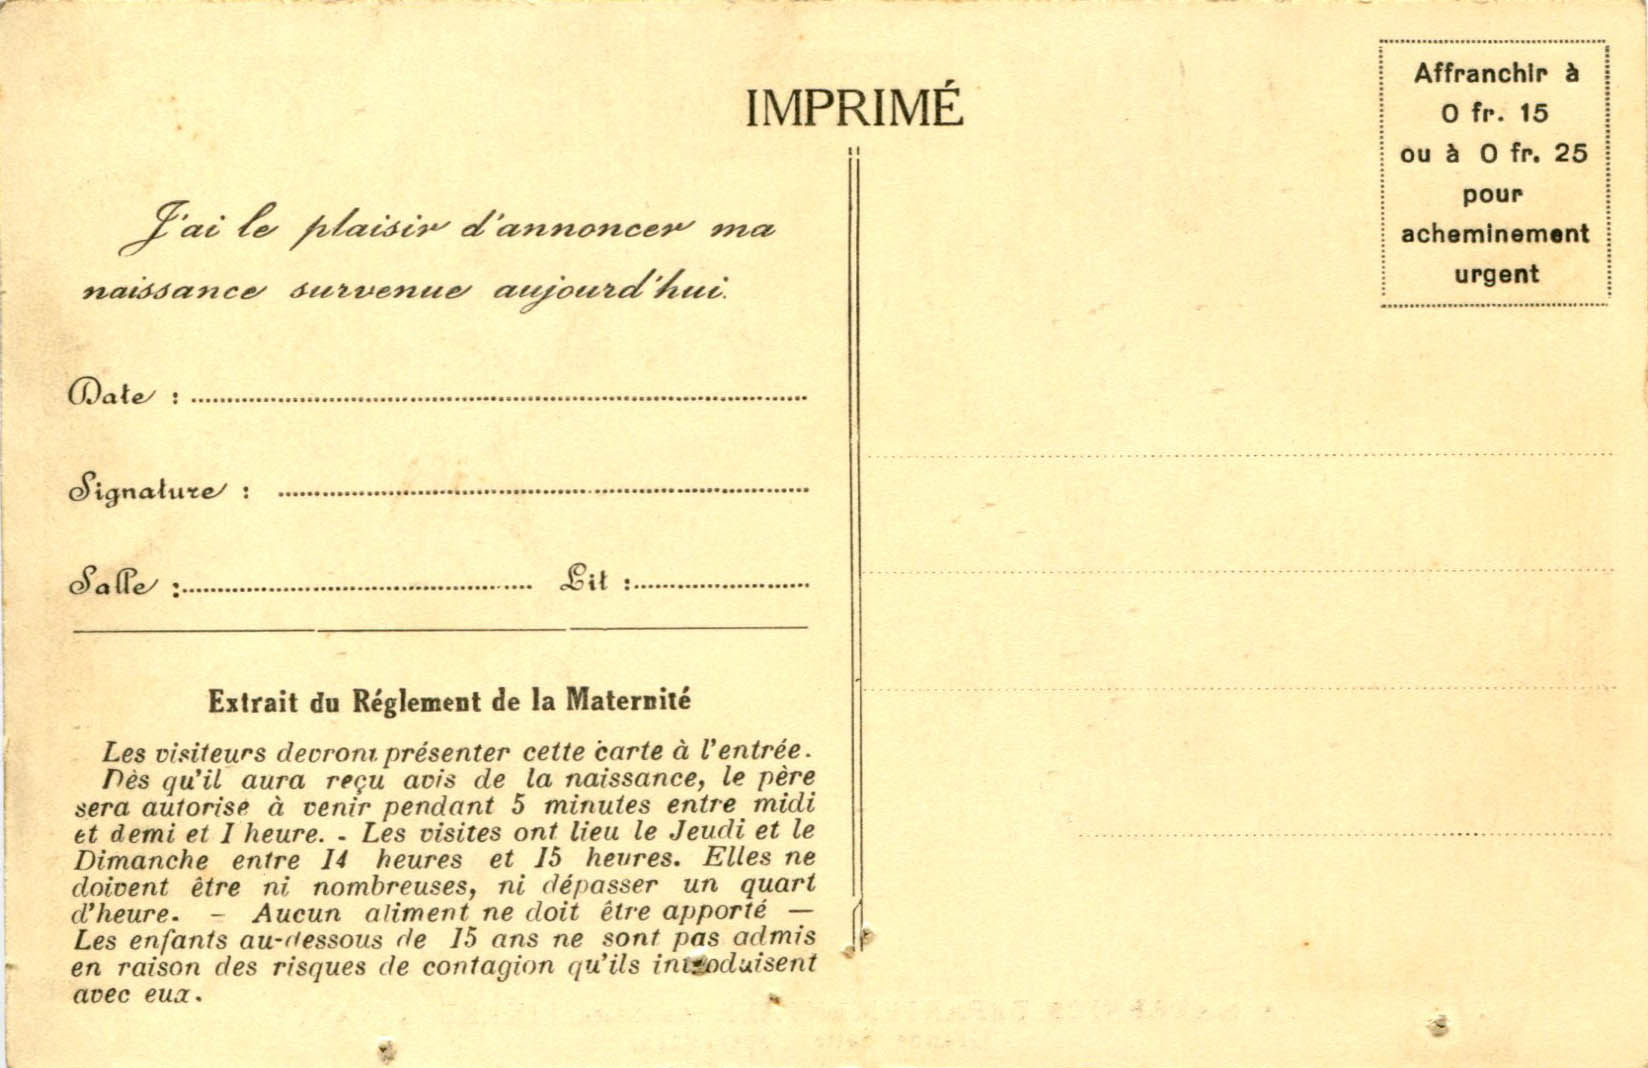 IMPRIMÉ
Affranchir à
0 fr. 15
ou à 0 fr. 25
pour
acheminement
urgent
J'ai le plaisir d'annoncer ma
naissance survenue aujourd'hui.
Date :
Signature :
Salle : Lit :
Extrait du Réglement de la Maternité
Les visiteurs devront présenter cette carte à l'entrée.
Dès qu'il aura reçu avis de la naissance, le père
sera autorisé à venir pendant 5 minutes entre midi
et demi et 1 heure. - Les visites ont lieu le Jeudi et le
Dimanche entre 14 heures et 15 heures. Elles ne
doivent être ni nombreuses, ni dépasser un quart
d'heure. - Aucun aliment ne doit être apporté —
Les enfants au-dessous de 15 ans ne sont pas admis
en raison des risques de contagion qu'ils introduisent
avec eux.